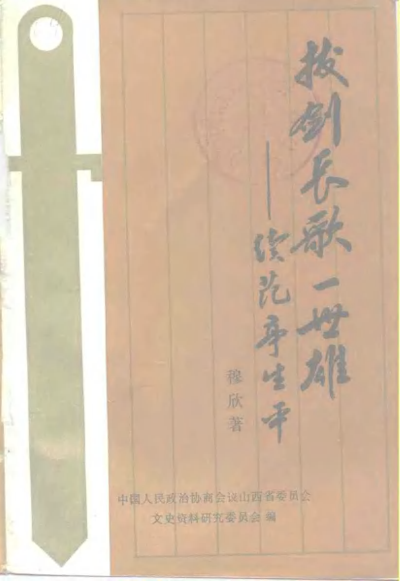 拔剑长歌一世雄
——续范亭生平
穆欣著
中国人民政治协商会议山西省委员会
文史资料研究委员会 编